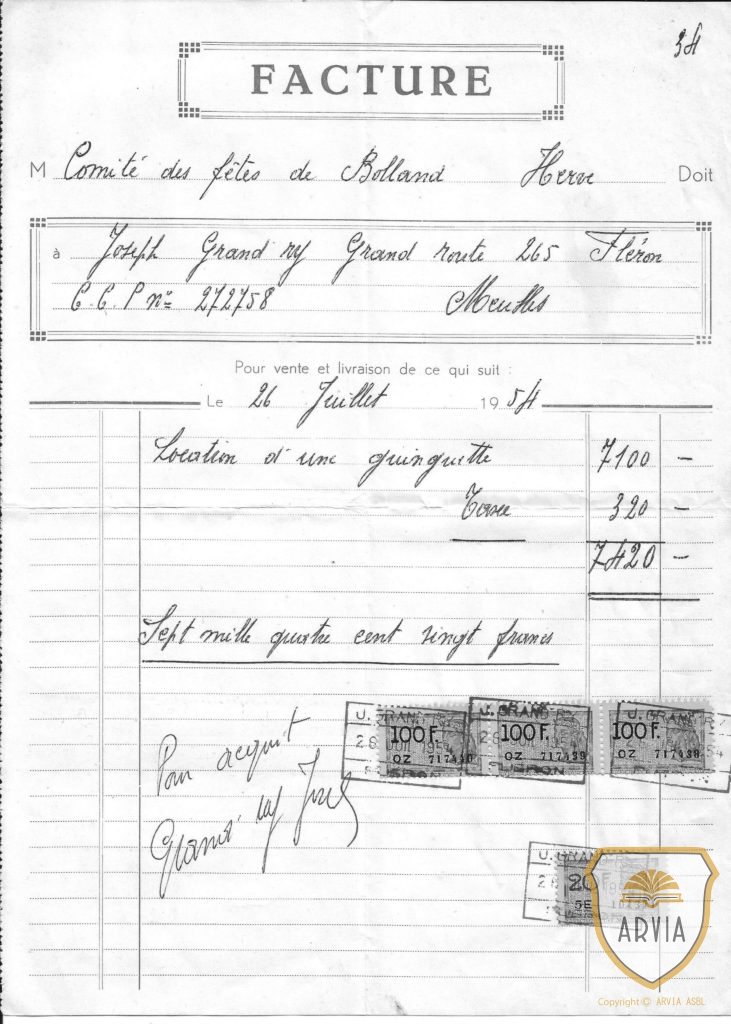 34
FACTURE
M Comité des fêtes de Bolland Herve Doit
à Joseph Grand ry Grand route 265 Fléron
C.C.P nº 272758
Pour vente et livraison de ce qui suit :
Le 26 Juillet 1954
Location d'une guinguette 7100 -
Taxe 320 -
7420 -
Sept mille quatre cent vingt francs
J. GRAND RY J. GRAND RY J. GRAND RY
100 F. 100 F. 100 F.
28 JUIL 1954
OZ 717440 OZ 717439 OZ 717438
FLERON
Pour acquit
Grand ry Jos
J. GRAND RY
20 F
5E
ARVIA
Copyright © ARVIA ASBL